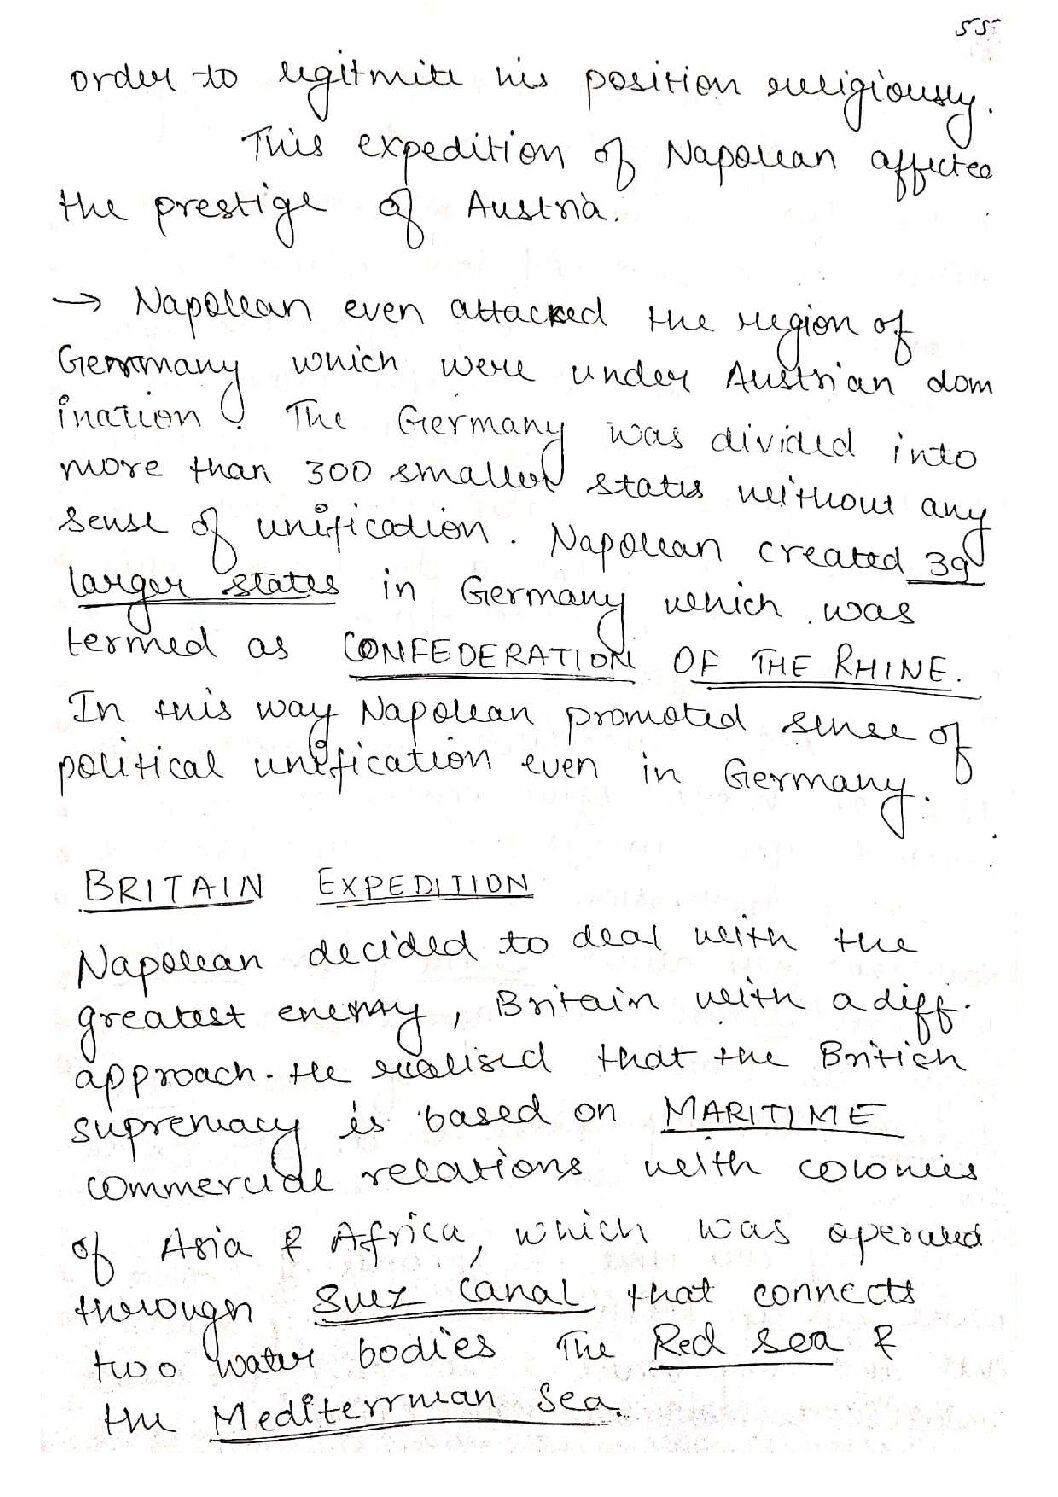 55
order to legitmite his position religiously.
This expedition of Napolean affected
the prestige of Austria.
→ Napolean even attacked the region of
Germmany which were under Austrian dom
ination. The Germany was divided into
more than 300 smaller states without any
sense of unification. Napolean created 39
larger states in Germany which was
termed as CONFEDERATION OF THE RHINE.
In this way Napolean promoted sense of
political unification even in Germany.
BRITAIN EXPEDITION
Napolean decided to deal with the
greatest enemy, Britain with a diff.
approach. He realised that the British
supremacy is based on MARITIME
commercial relations with colonies
of Asia & Africa, which was operated
thorough Suez Canal that connects
two water bodies The Red Sea &
the Mediterrnean Sea